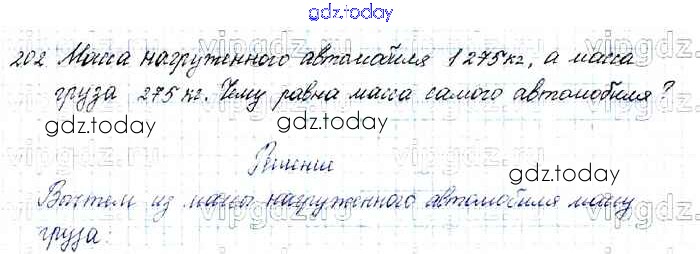 gdz.today
202 Масса нагруженного автомобиля 1275кг, а масса
груза 275 кг. Чему равна масса самого автомобиля?
gdz.today
gdz.today
vipgdz.ru
Решение
gdz.today
Вычтем из массы нагруженного автомобиля массу
vipgdz.ru
груза: